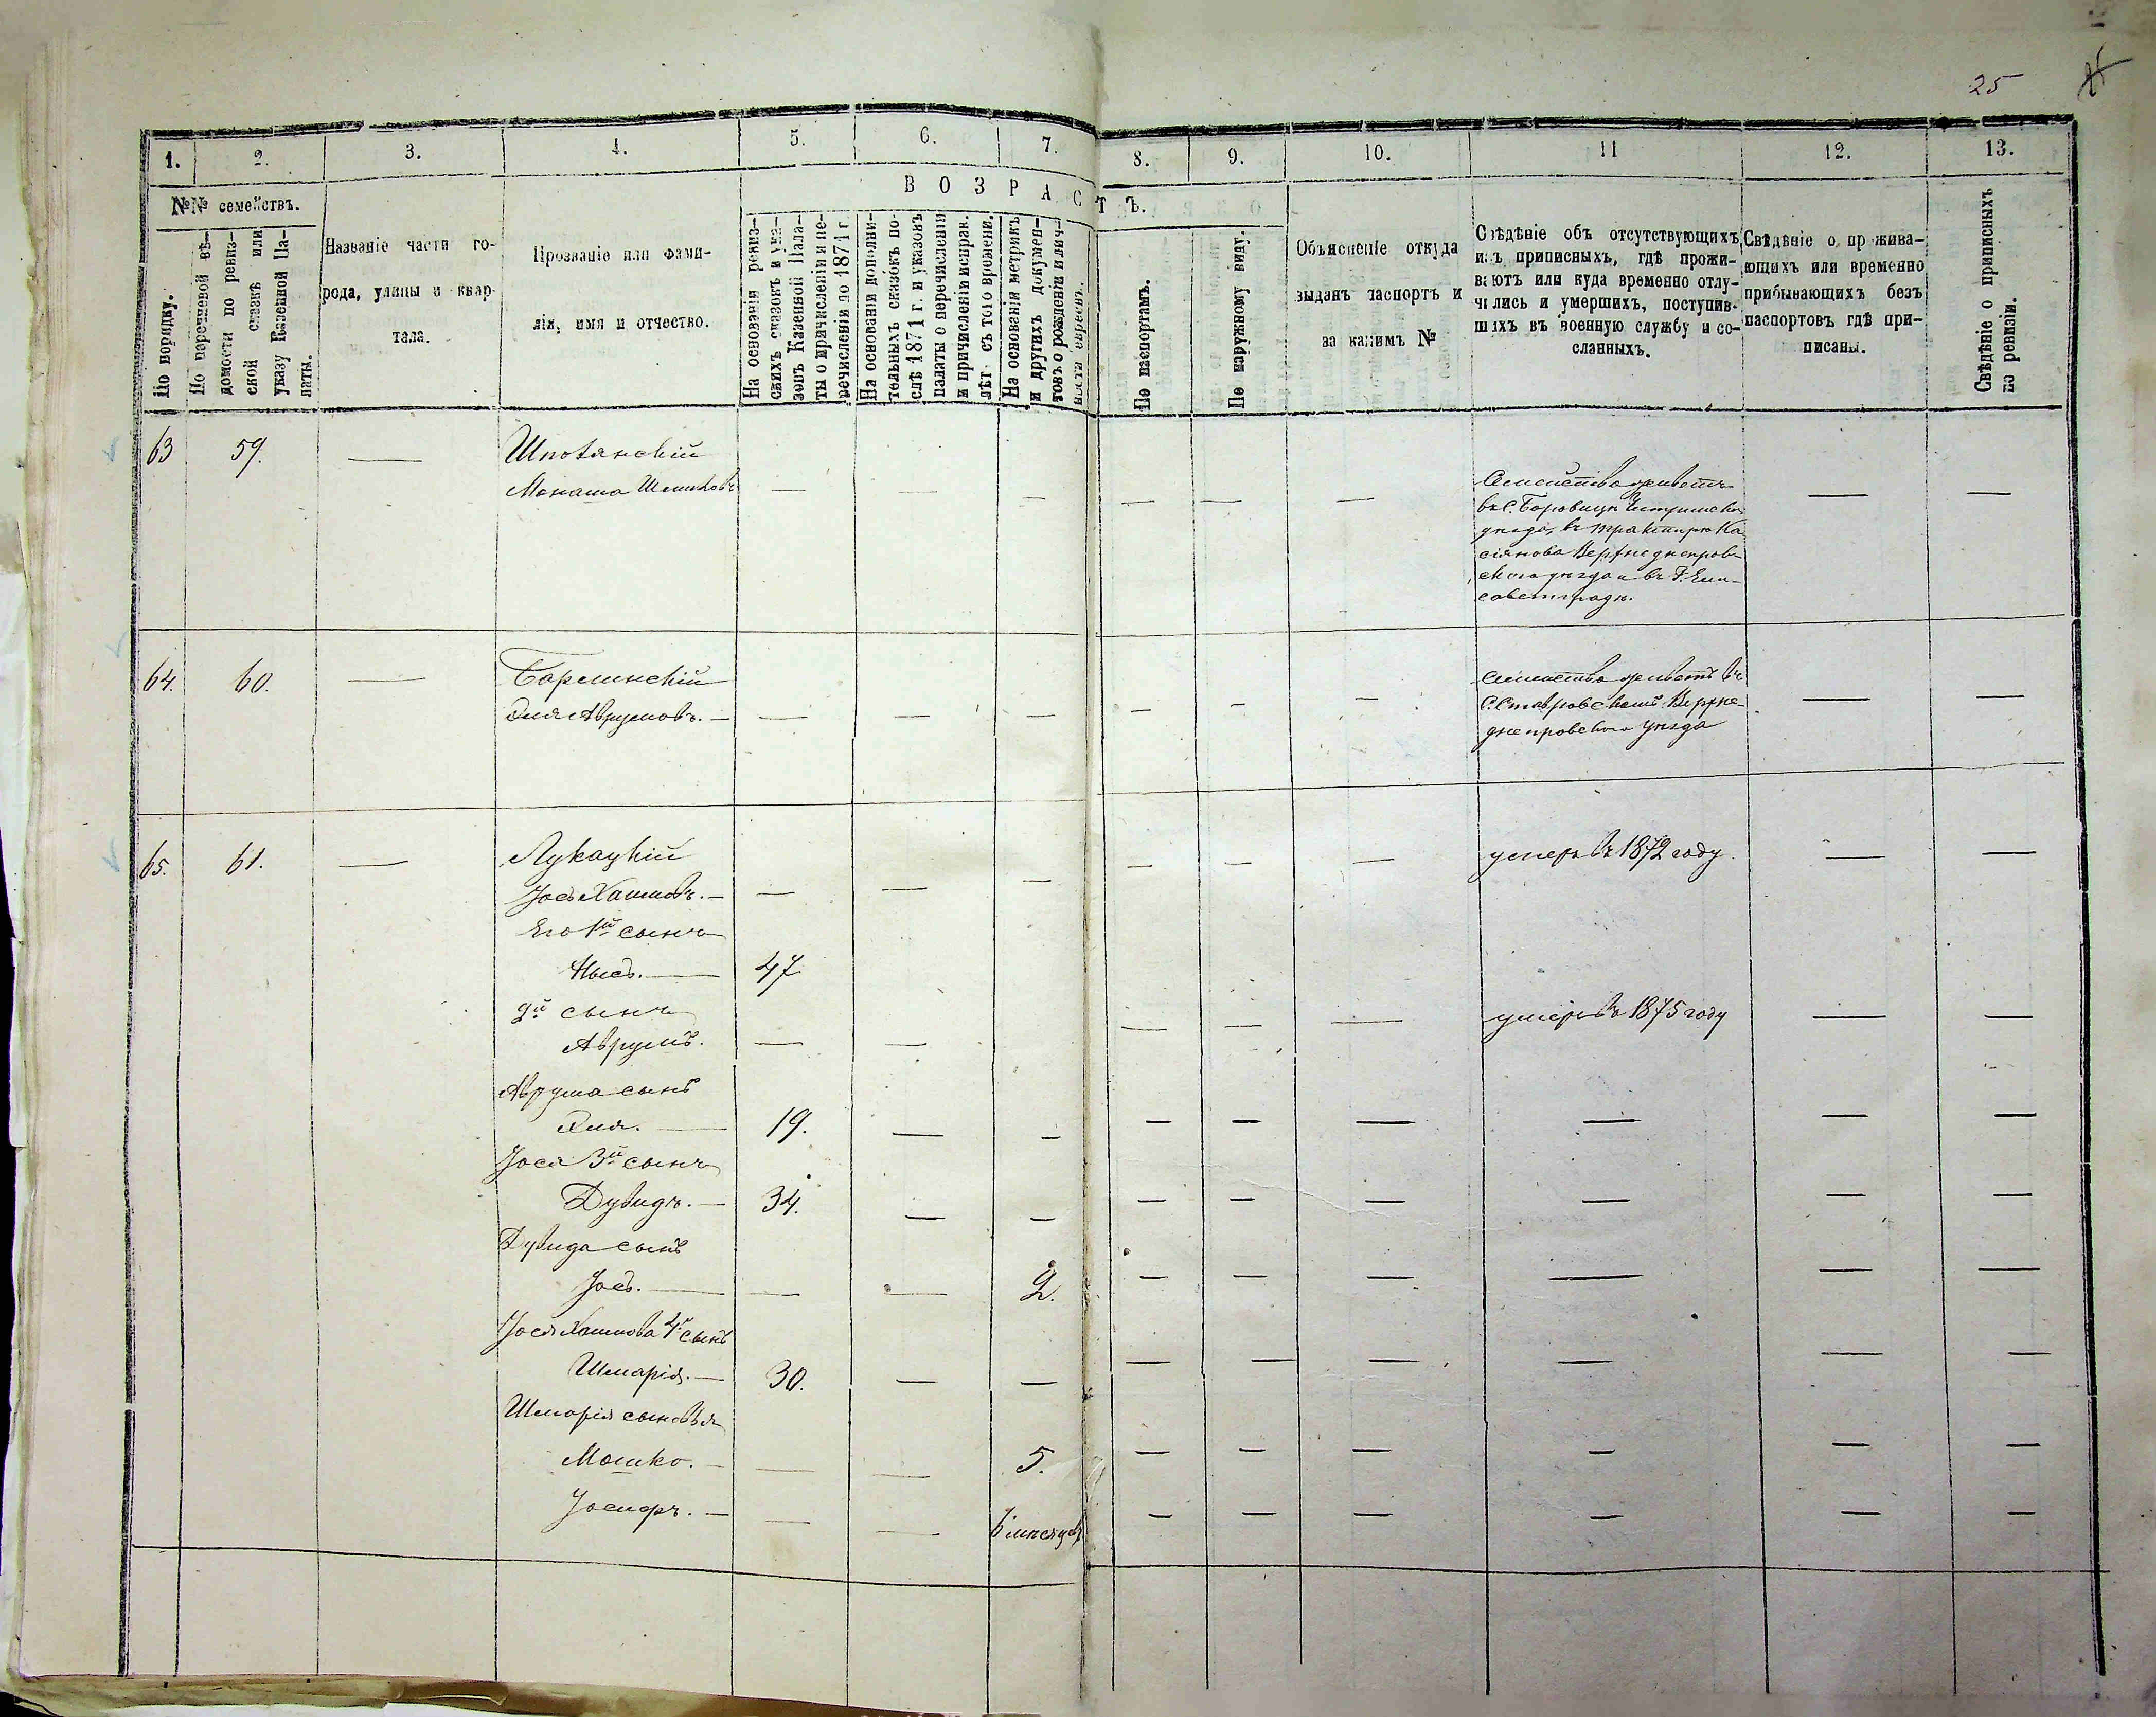 25
1. 2. 3. 4. 5. 6. 7. 8. 9. 10. 11 12. 13.
№№ семействъ.
По порядку.
По перечневой вѣ-
домости по ревиз-
ской сказкѣ или
указу Казенной Па-
латы.
Названіе части го-
рода, улицы и квар-
тала.
Прозваніе или фами-
лія, имя и отчество.
ВОЗРАСТЪ.
На основаніи ревиз-
скихъ сказокъ и ука-
зовъ Казенной Пала-
ты о причисленіи и пе-
речисленіи до 1871 г.
На основаніи дополни-
тельныхъ сказокъ по-
слѣ 1871 г. и указовъ
палаты о перечисленіи
и причисленіи исправ.
лѣт. съ того времени.
На основаніи метрикъ
и другихъ докумен-
товъ о рожденіи и лич-
ности евреевъ.
По паспортамъ.
По наружному виду.
Объясненіе откуда
выданъ паспортъ и
за какимъ №
Свѣдѣніе объ отсутствующихъ
изъ приписныхъ, гдѣ прожи-
ваютъ или куда временно отлу-
чились и умершихъ, поступив-
шихъ въ военную службу и со-
сланныхъ.
Свѣдѣніе о прожива-
ющихъ или временно
прибывающихъ безъ
паспортовъ гдѣ при-
писаны.
Свѣдѣніе о приписныхъ
по ревизіи.
63 59. — Шполянскій
Монаша Шлиомовъ — — — — — — — —
Семейство живетъ
въ С. Боровицѣ Чигринска
уѣзда, въ трактирѣ Ка
сіянова Верхнеднепров
скаго уѣзда и въ Г. Ели-
саветградѣ.
64. 60. — Борсинскій
Эля Аврумовъ. — — — — — — — — —
Семейство живетъ въ
Верхне-
днепровскаго уѣзда
65. 61. — Лукацкій
Іось Хаимовъ. — — — — — — — умеръ въ 1872 году. — —
Его 1й сынъ
47
2й сынъ
Аврумъ. — — — — — умеръ въ 1875 году — —
Аврума сынъ
Эля. — 19. — — — — — — — —
Іося 3й сынъ
Дувидъ. — 34. — — — — — — — —
Дувида сынъ
Іось. — — — 2. — — — — — —
Іося Хаимова 4й сынъ
Шмарія. — 30. — — — — — — — —
Шмарія сыновья
Мошко. — — — 5. — — — — — —
Іосифъ. — — — 6 мѣсяцевъ — — — — — —